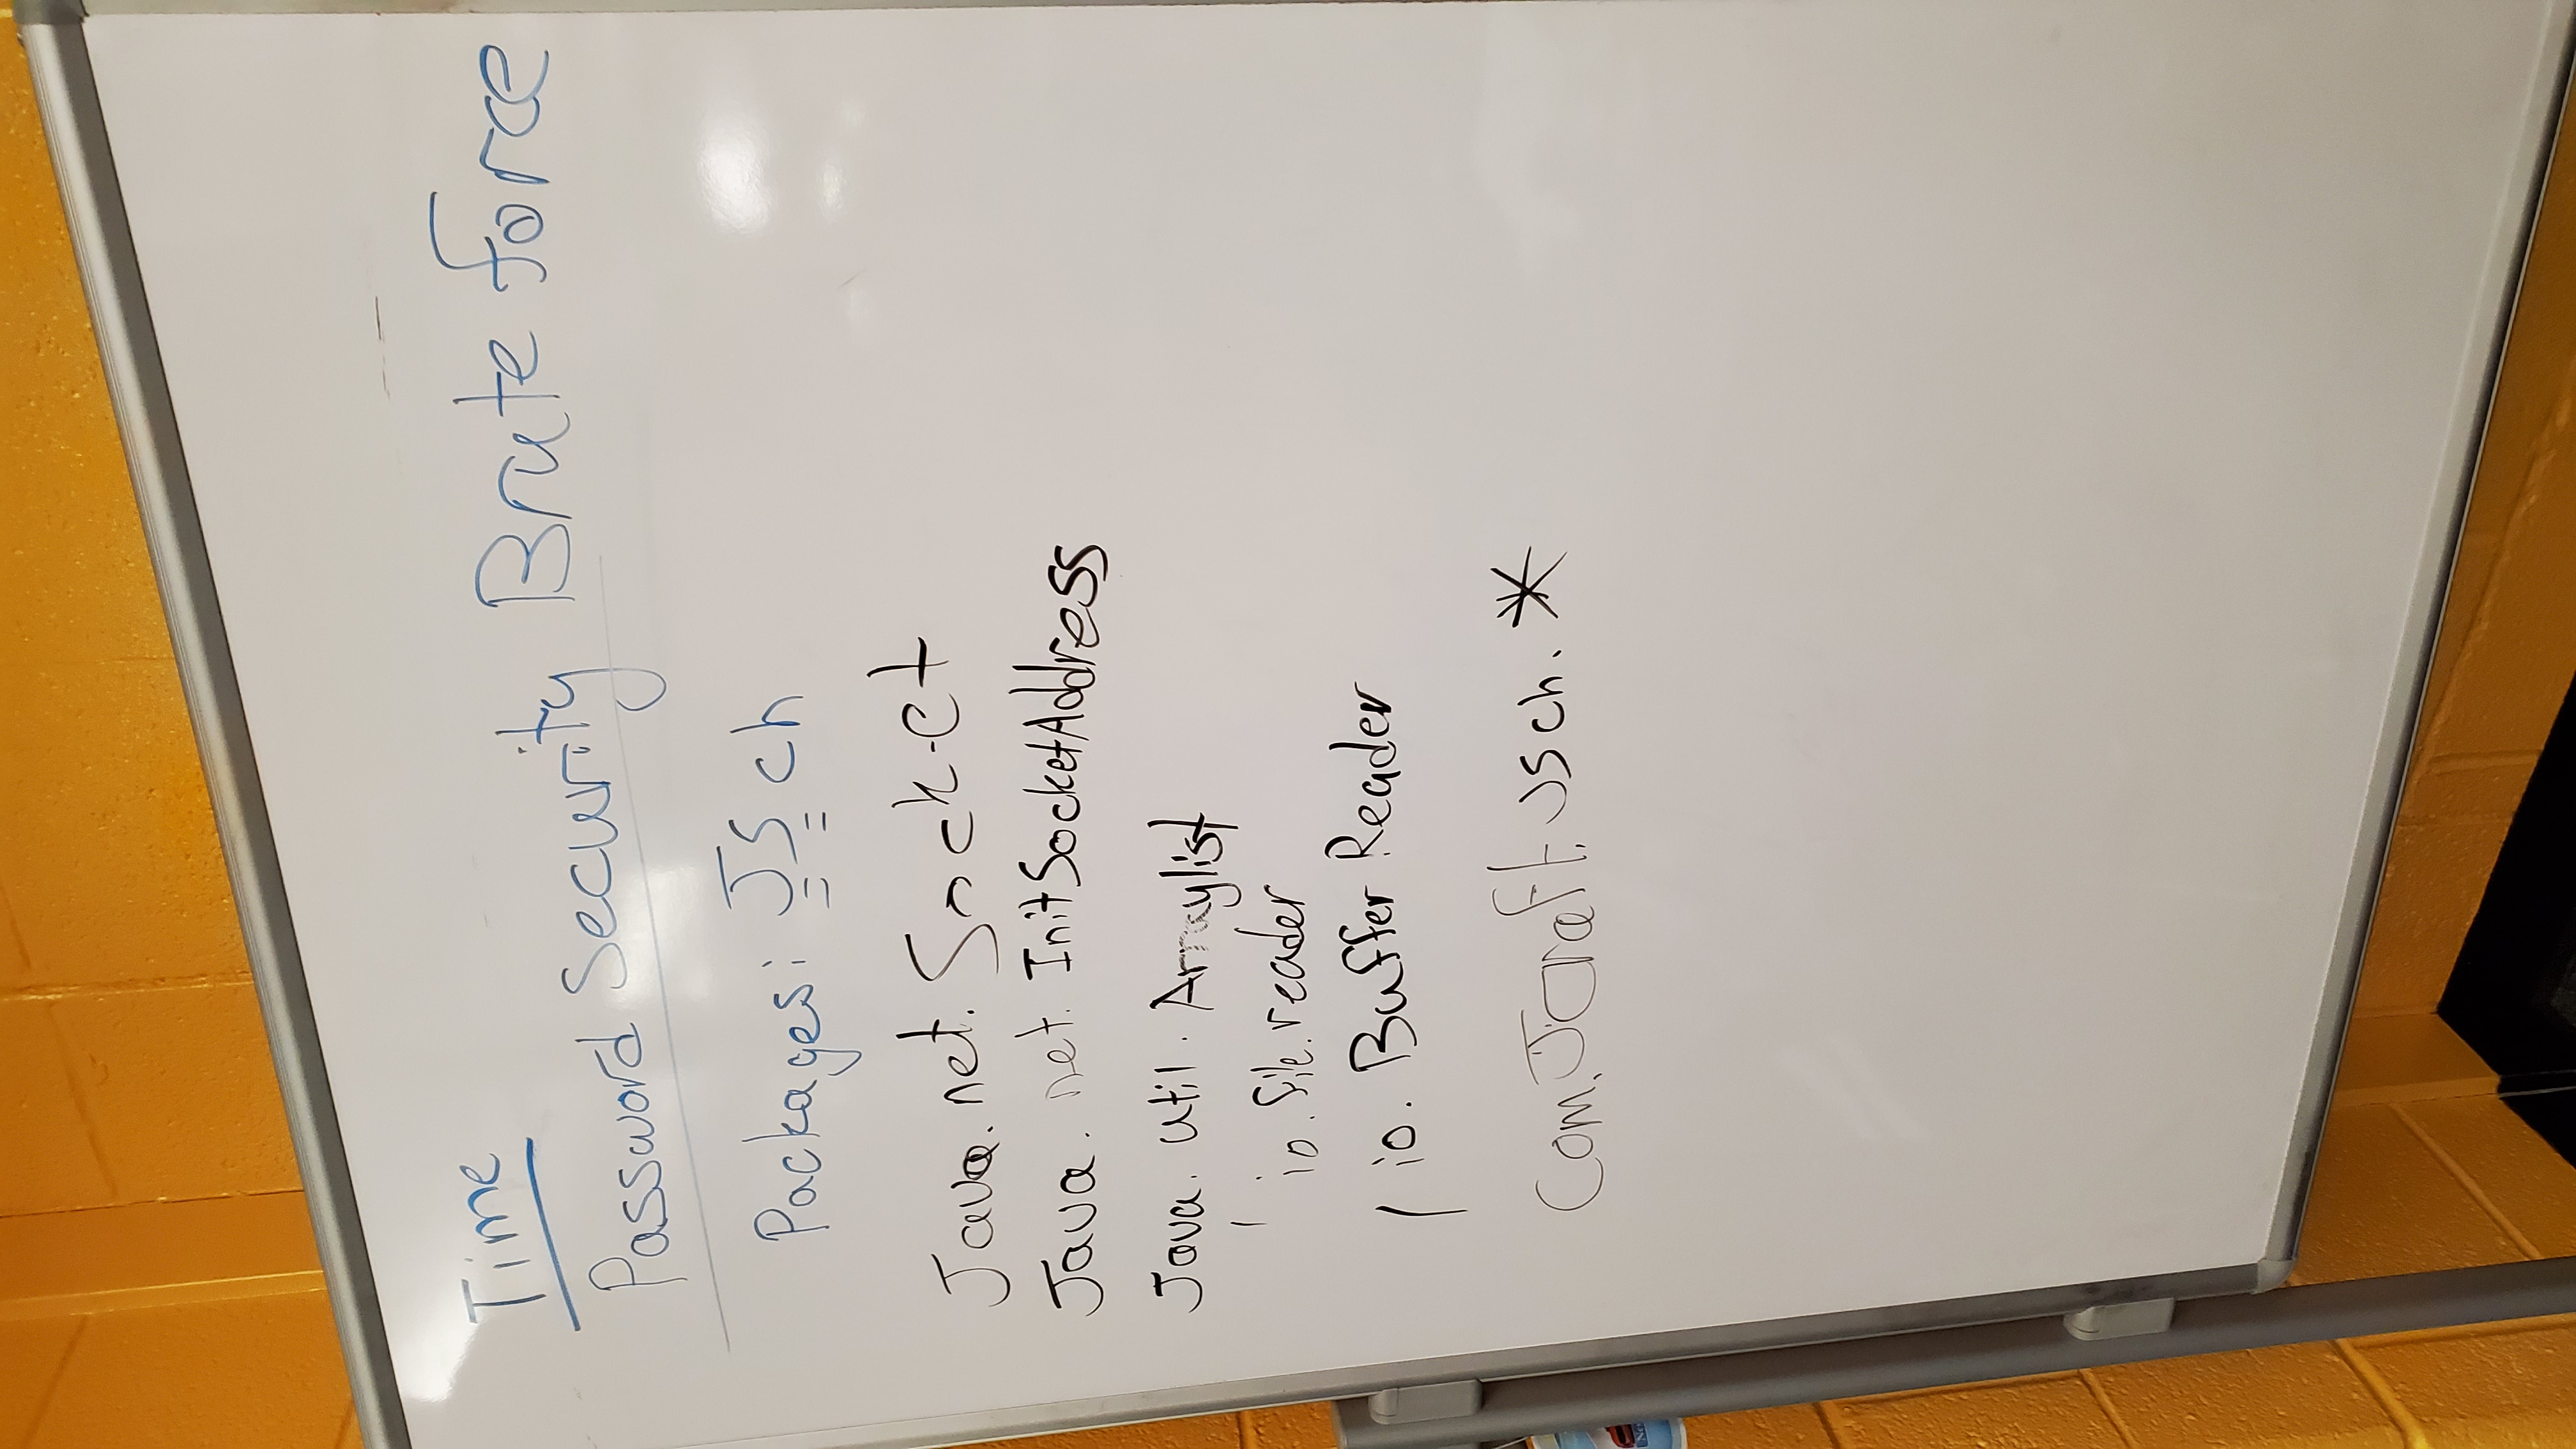 Time
Password Security Brute force
Packages: JSch
Java.net.Socket
Java.net.InitSocketAddress
Java.util.Arraylist
| io.file.reader
| io.Buffer Reader
Com.Jcraft.JSch.*